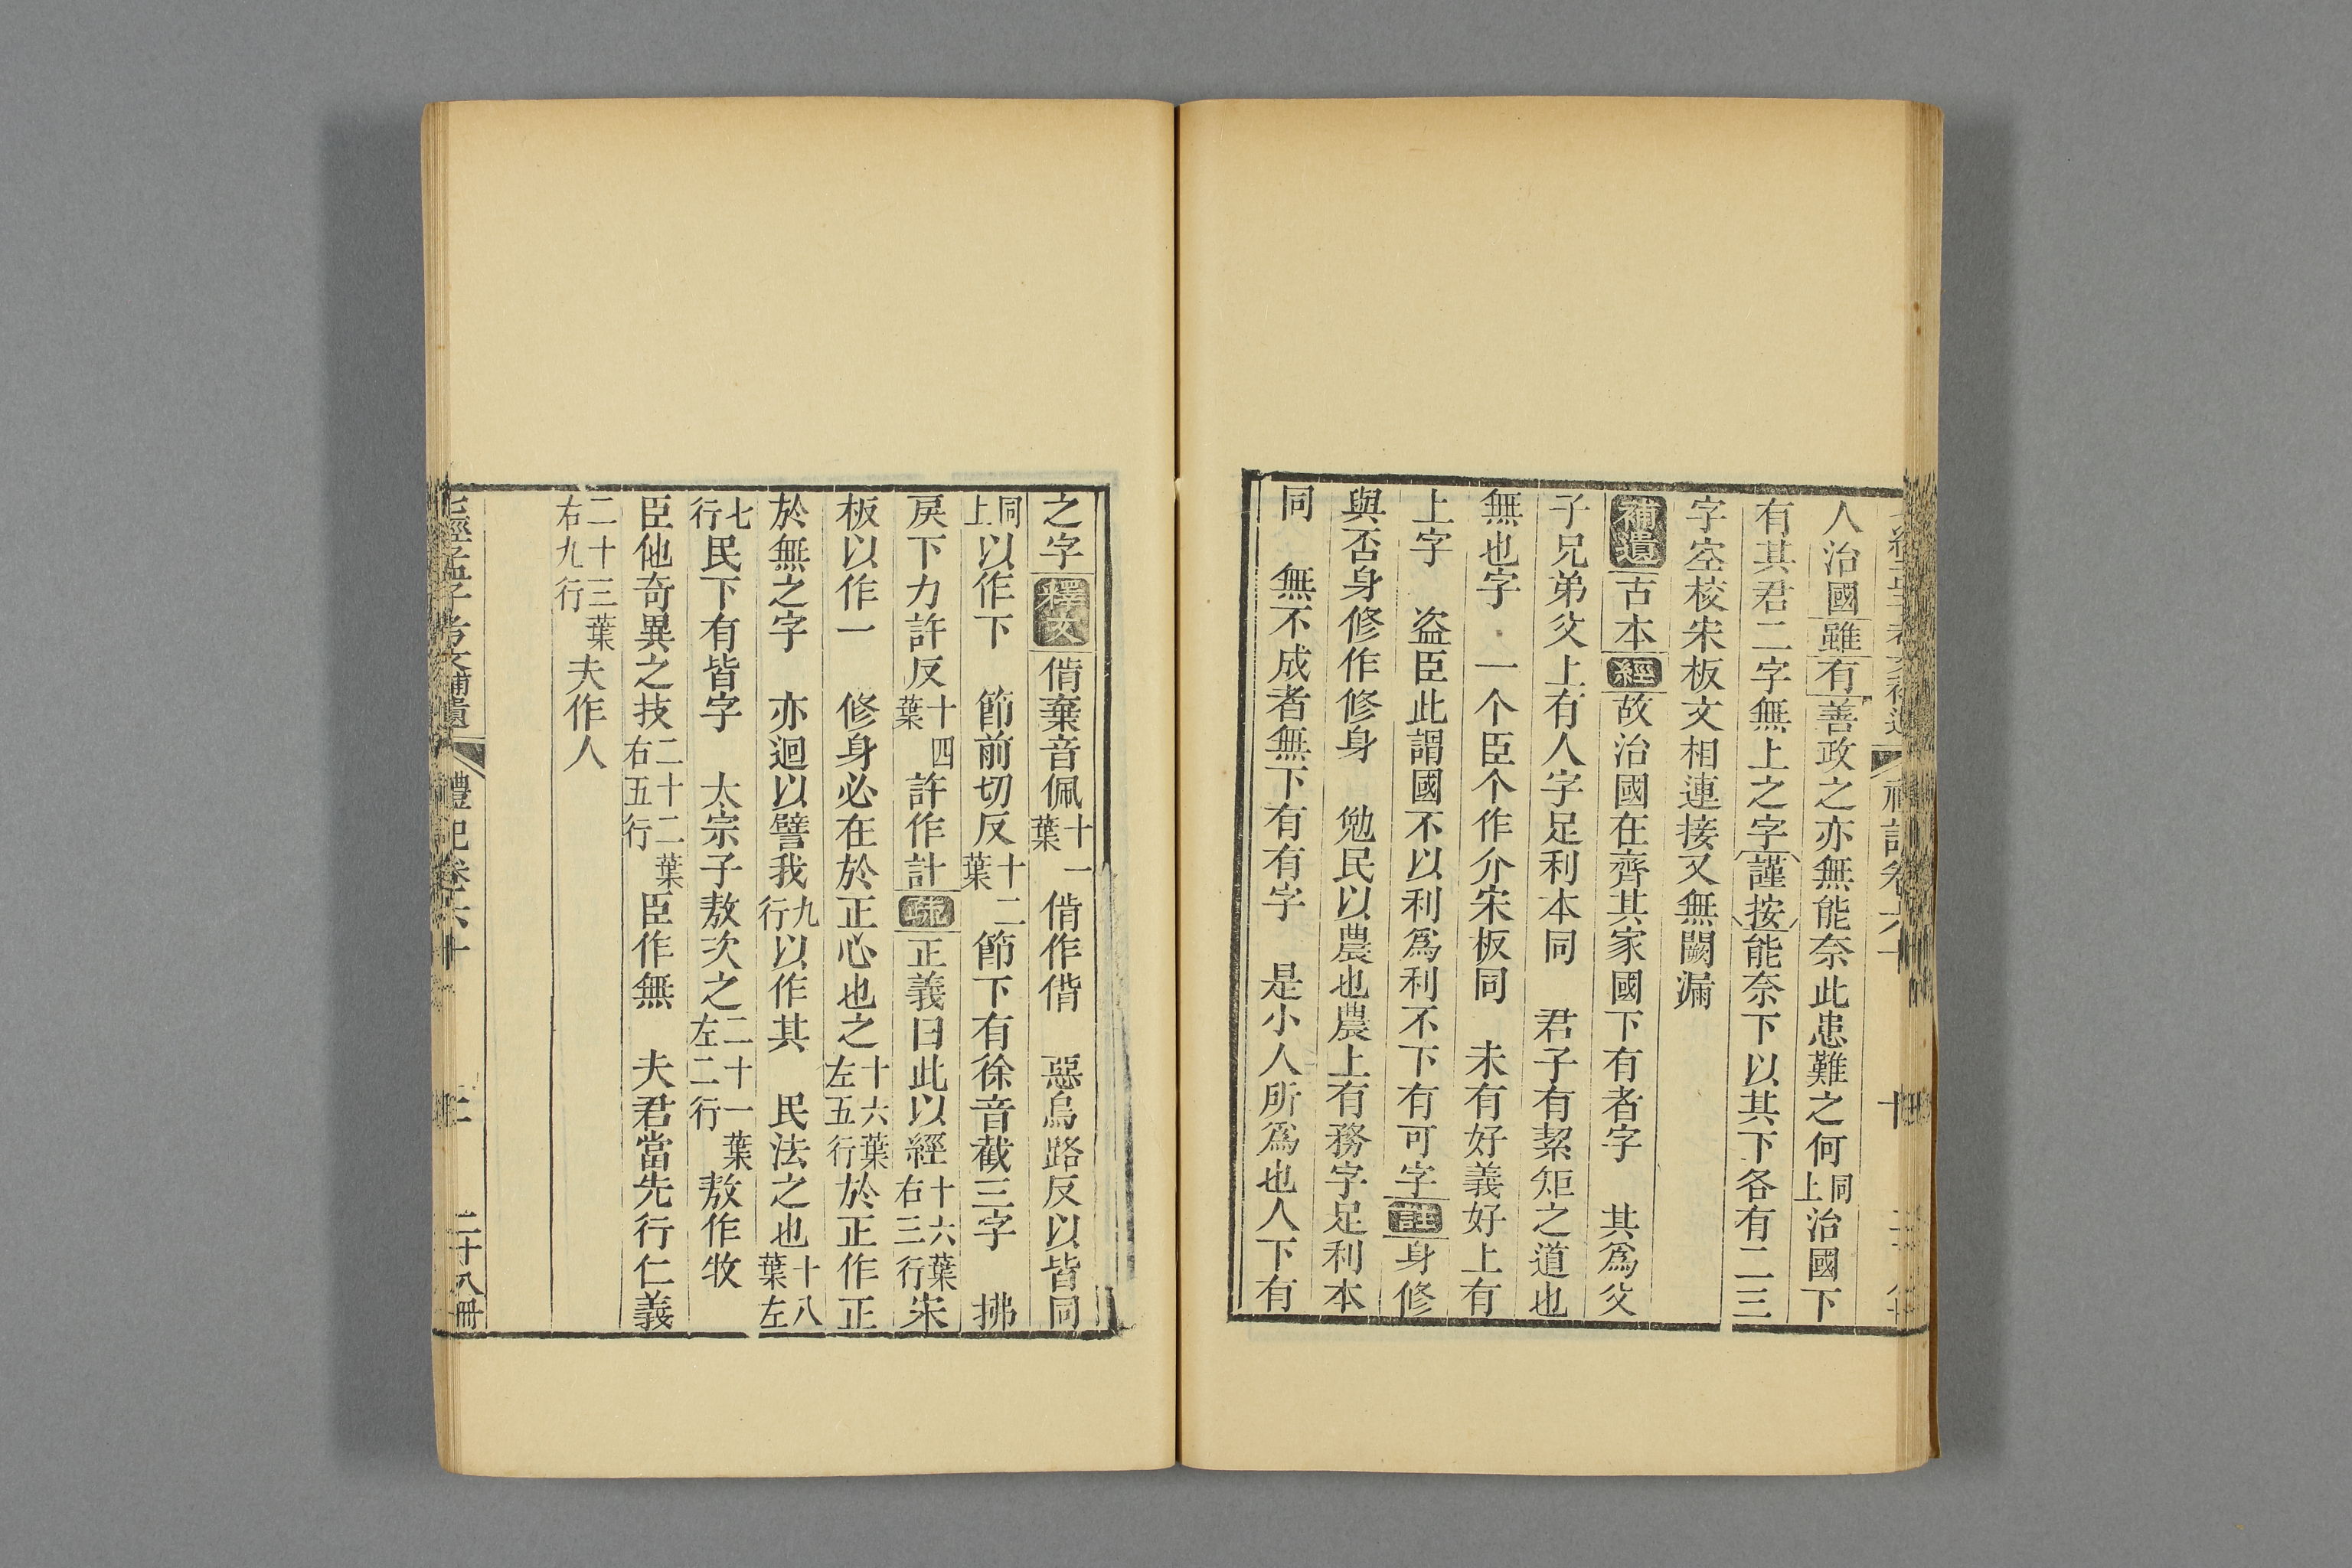 人治國雖有善政之亦無能奈此患難之何同上治國下
有其君二字無上之字謹按能奈下以其下各有二三
字空校宋板文相連接又無闕漏
補遺古本經故治國在齊其家國下有者字　其爲父
子兄弟父上有人字足利本同　君子有絜矩之道也
無也字　一个臣个作介宋板同　未有好義好上有
上字　盗臣此謂國不以利爲利不下有可字註身修
與否身修作修身　勉民以農也農上有務字足利本
同　無不成者無下有有字　是小人所爲也人下有
之字釋文偝棄音佩十一葉偝作偕　惡烏路反以皆同
同上以作下　節前切反十二葉節下有徐音截三字　拂
戾下力許反十四葉許作計疏正義曰此以經十六葉右三行宋
板以作一　修身必在於正心也之十六葉左五行於正作正
於無之字　亦迴以譬我九行以作其　民法之也十八葉左
七行民下有皆字　太宗子敖次之二十一葉左二行敖作牧
臣他奇異之技二十二葉右五行臣作無　夫君當先行仁義
二十三葉右九行夫作人
七經孟子考文補遺　禮記卷六十　二十八冊